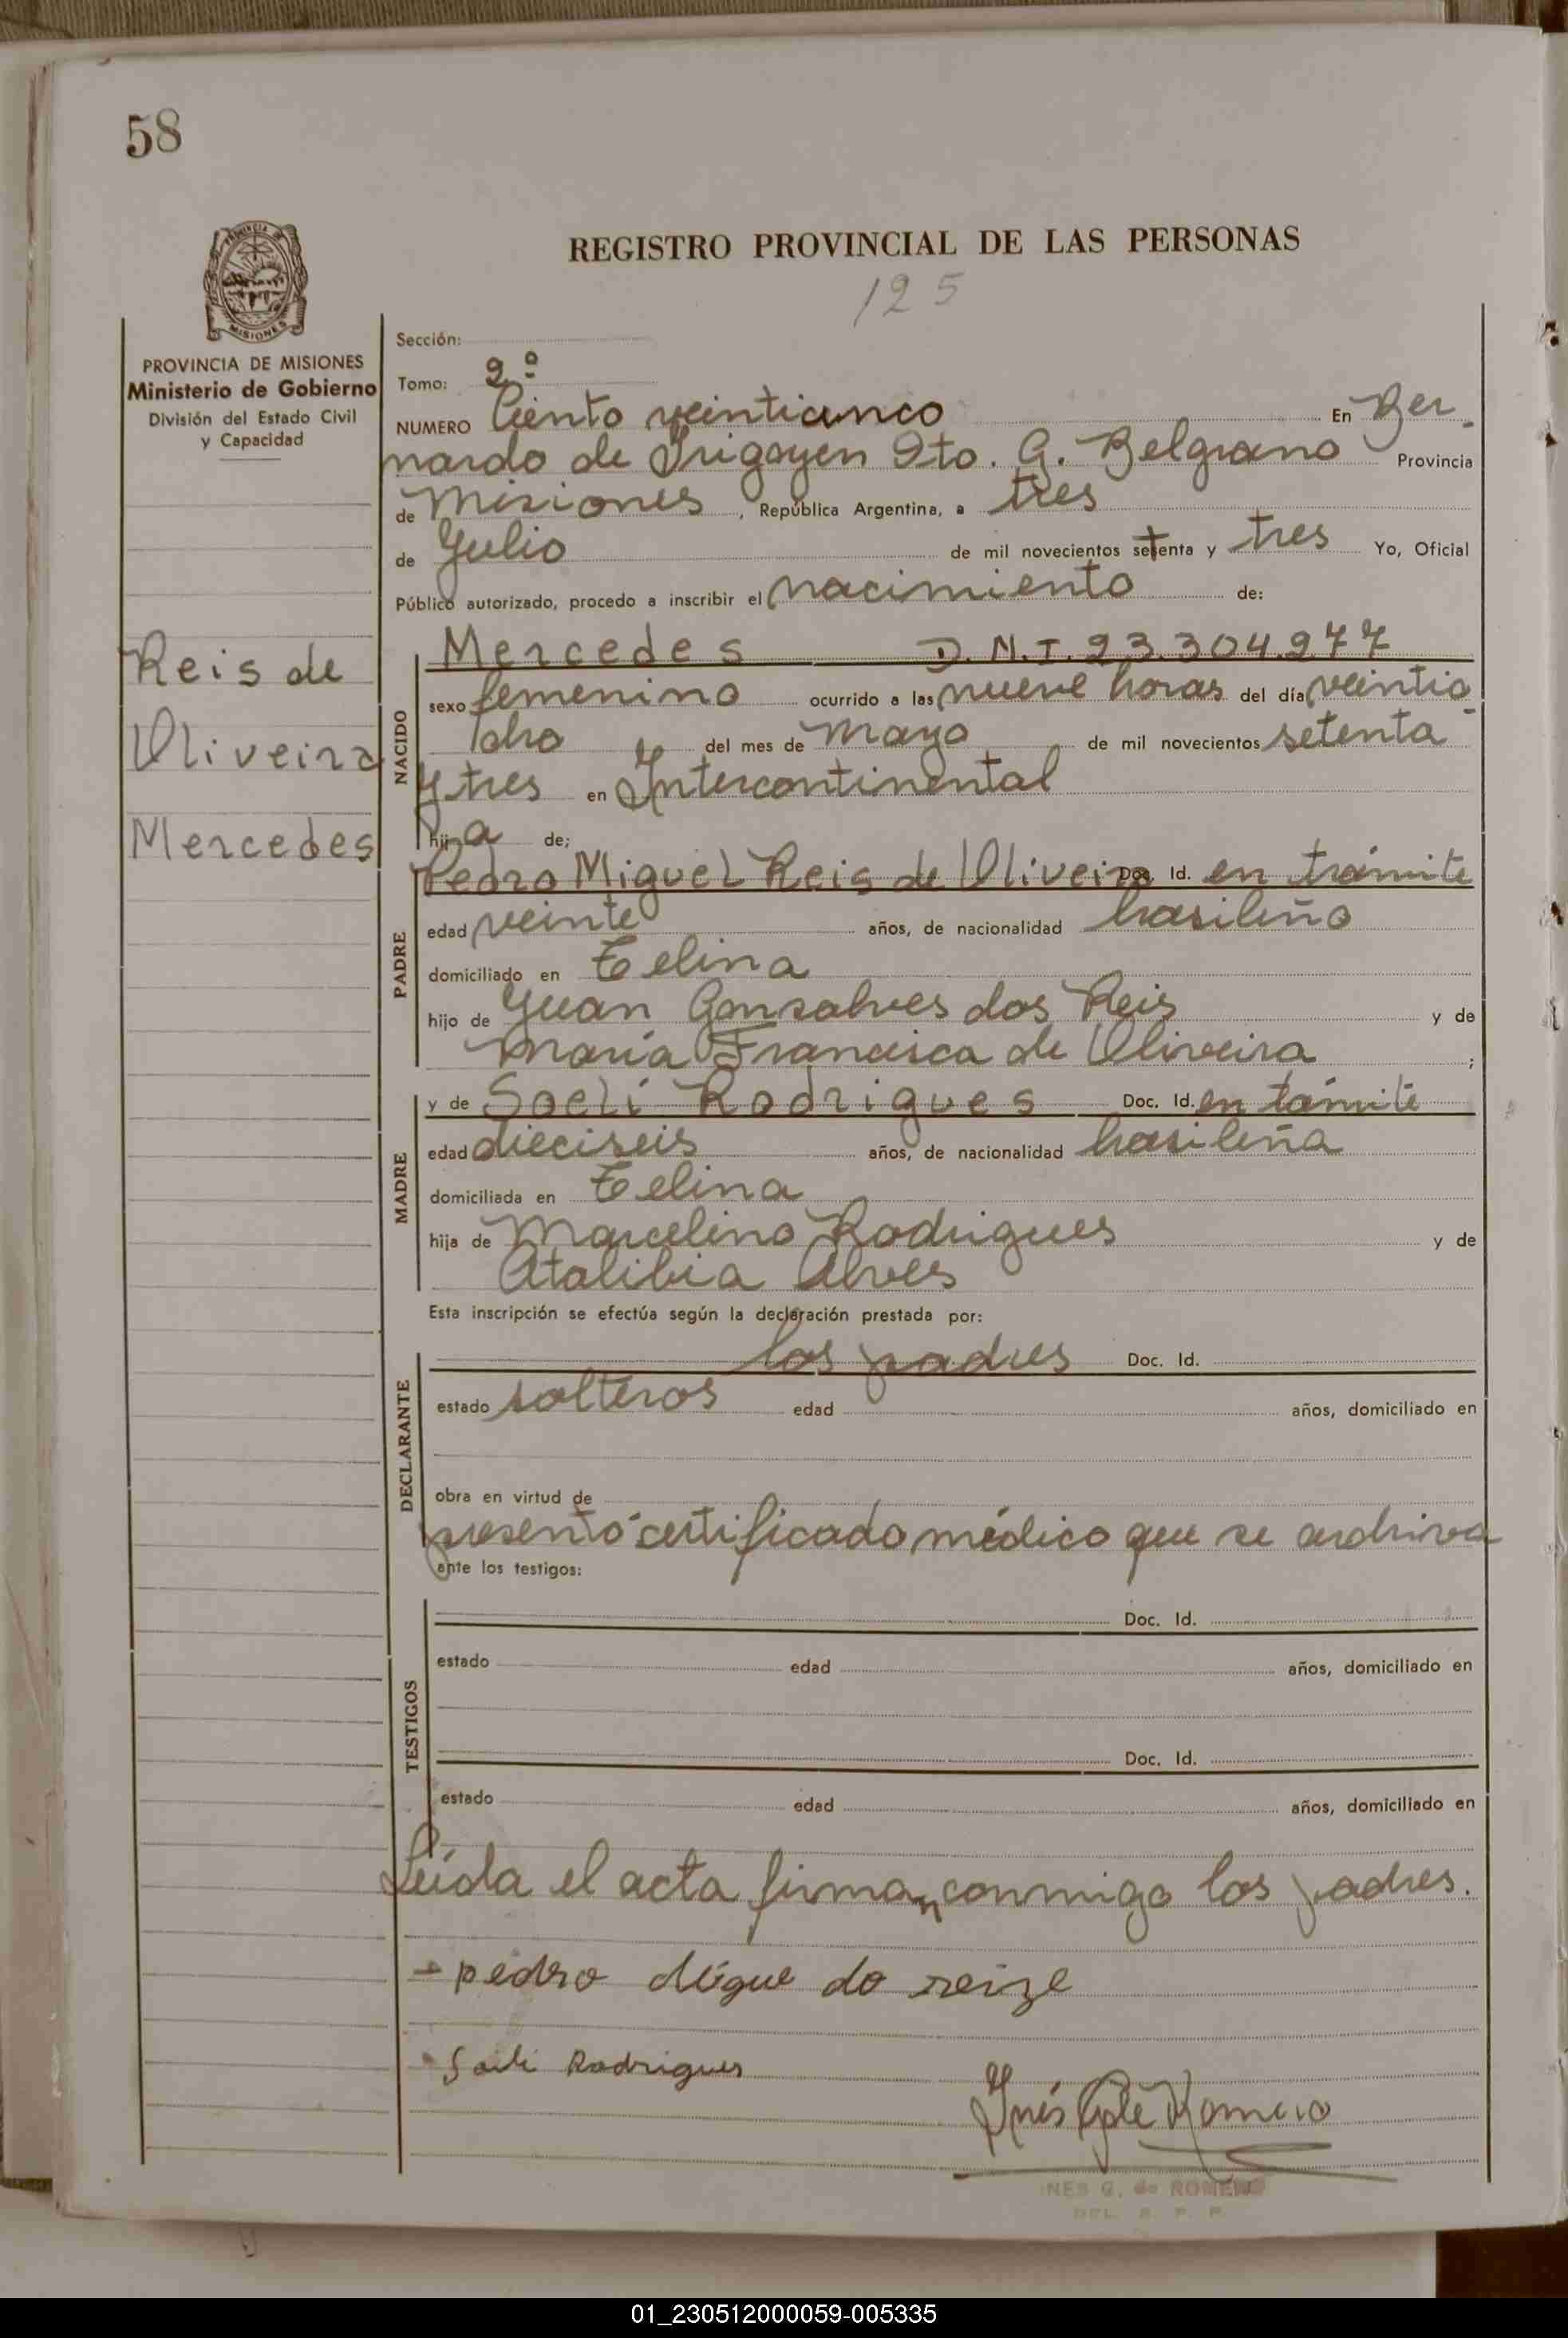 58
REGISTRO PROVINCIAL DE LAS PERSONAS
125
PROVINCIA DE MISIONES
Ministerio de Gobierno
División del Estado Civil
y Capacidad
Reis de
Oliveira
Mercedes
Sección:
Tomo: 2º
NUMERO Ciento veinticinco En Ber-
nardo de Irigoyen Dto. G. Belgrano Provincia
de Misiones, República Argentina, a tres
de Julio de mil novecientos setenta y tres Yo, Oficial
Público autorizado, procedo a inscribir el nacimiento de:
NACIDO
Mercedes D.N.I. 23.304.277
sexo femenino ocurrido a las nueve horas del día veintio-
cho del mes de mayo de mil novecientos setenta
y tres en Intercontinental
hija de;
PADRE
Pedro Miguel Reis de Oliveira Doc. Id. en trámite
edad veinte años, de nacionalidad brasileño
domiciliado en Celina
hijo de Juan Gonsalves dos Reis y de
María Francisca de Oliveira ;
MADRE
y de Saeli Rodrigues Doc. Id. en támite
edad dieciseis años, de nacionalidad brasileña
domiciliada en Celina
hija de Marcelino Rodrigues y de
Atalibia Alves
Esta inscripción se efectúa según la declaración prestada por:
DECLARANTE
los padres Doc. Id.
estado solteros edad años, domiciliado en
obra en virtud de
presentó certificado médico que se archiva
ante los testigos:
TESTIGOS
Doc. Id.
estado edad años, domiciliado en
Doc. Id.
estado edad años, domiciliado en
Leída el acta firman conmigo los padres.
pedro do reize
Rodrigues
Inés Romero
INES G. de ROMERO
01_230512000059-005335